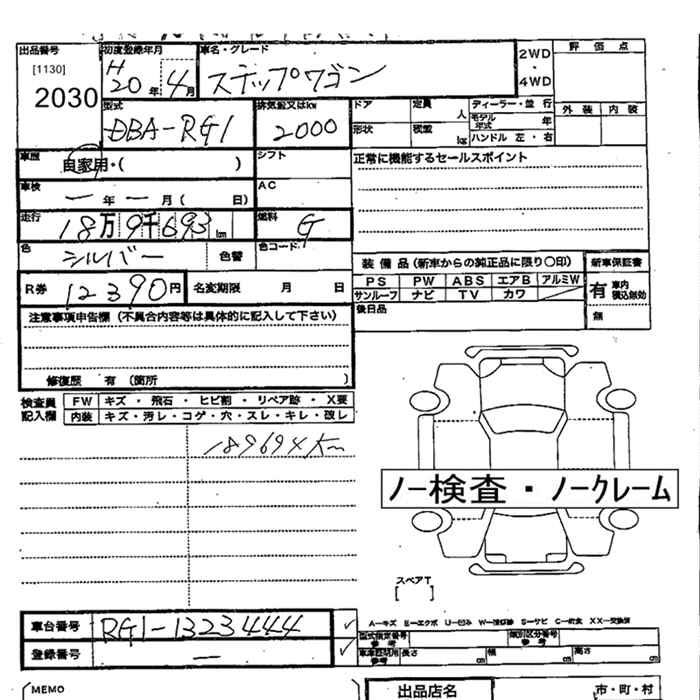 出品番号
[1130]
2030
初度登録年月
H20年 4月
車名・グレード
ステップワゴン
2WD
・
4WD
評価点
外装 内装
型式
DBA-RG1
排気量又はkw
2000
ドア
定員 人
形状
積載 kg
ディーラー・並行
モデル年式 年
ハンドル 左・右
車歴
自家用・( )
シフト
車検
ー年ー月( 日)
AC
走行
18万9千693km
燃料
G
色
シルバー
色替
色コード
R券
12390円
名変期限 月 日
正常に機能するセールスポイント
装備品(新車からの純正品に限り○印)
PS PW ABS エアB アルミW
サンルーフ ナビ TV カワ
後日品
新車保証書
有 車内積込無効
無
注意事項申告欄(不具合内容等は具体的に記入して下さい)
修復歴 有(箇所 )
検査員記入欄
FW キズ・飛石・ヒビ割・リペア跡・X要
内装 キズ・汚レ・コゲ・穴・スレ・キレ・改レ
ノー検査・ノークレーム
スペアT
[ ]
車台番号
RG1-1323444
登録番号
ー
A-キズ E-エクボ U-凹み W-補修跡 S-サビ C-腐食 XX-交換済
型式指定番号 参考
類別区分番号 参考
車庫証明用 参考
長さ cm 幅 cm 高さ cm
MEMO
出品店名
市・町・村